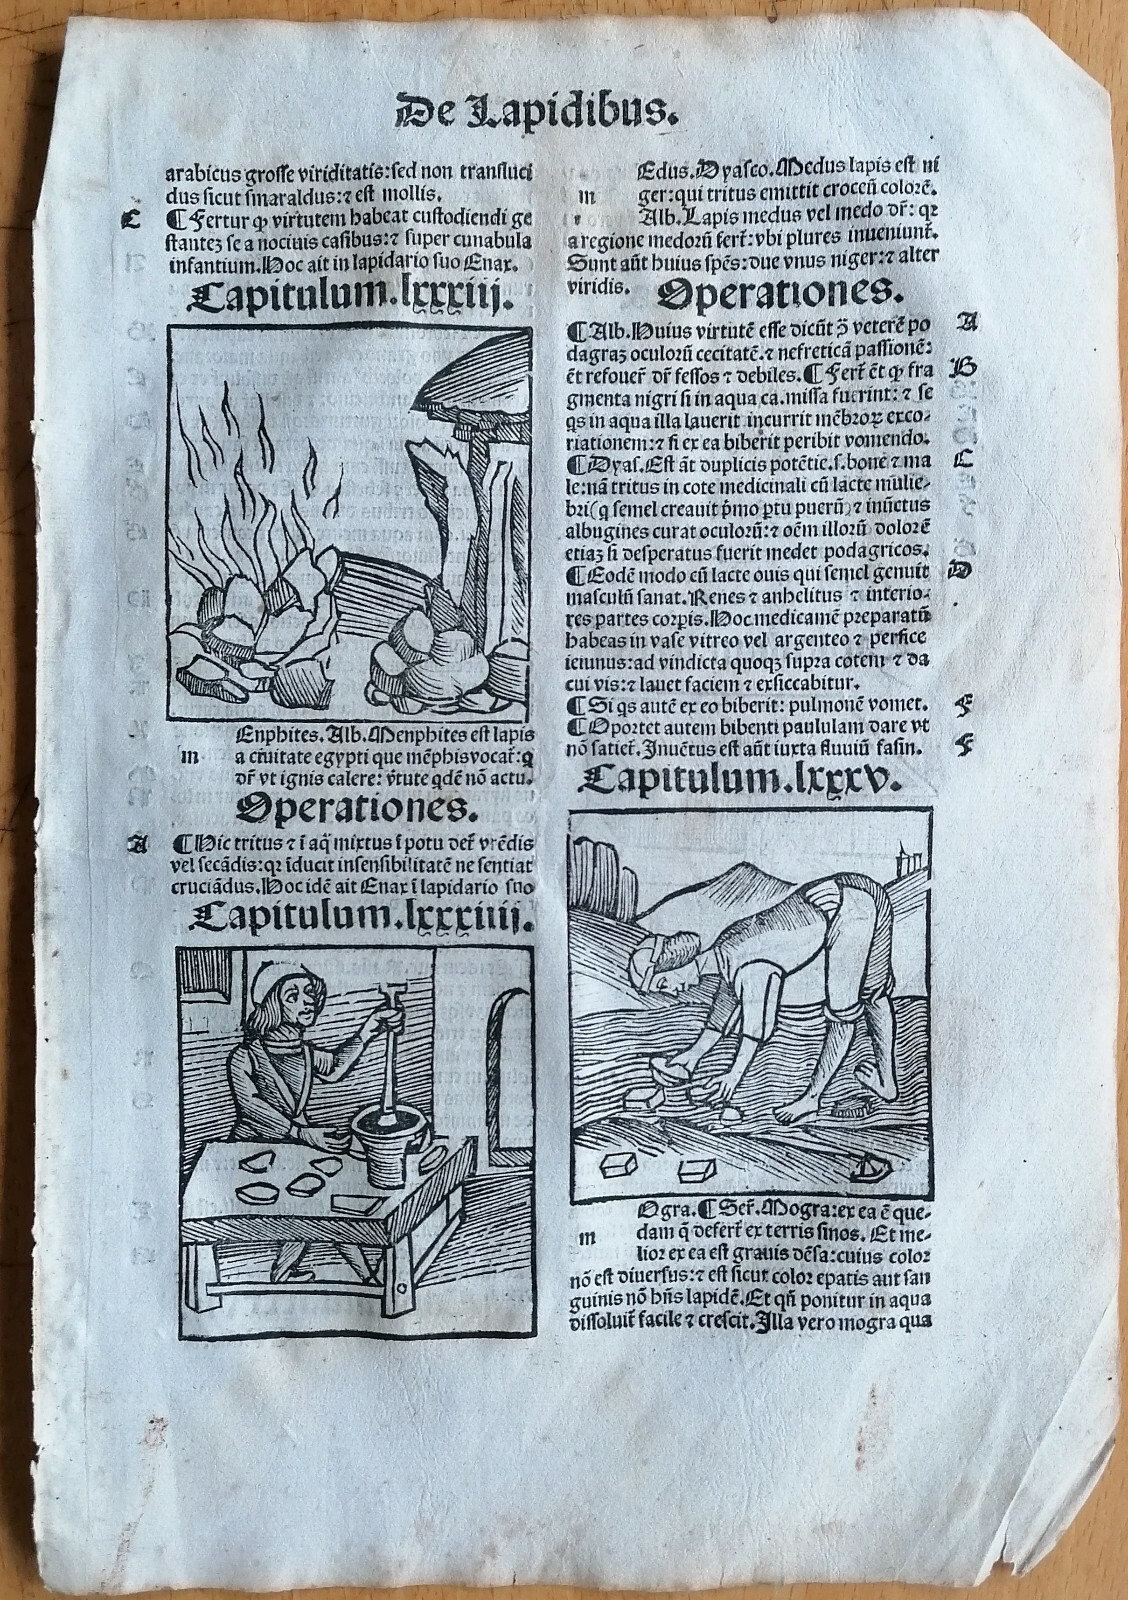 De Lapidibus.
arabicus grosse viriditatis:sed non transluci
dus sicut smaraldus:⁊ est mollis.
C
¶ Fertur ꝙ virtutem habeat custodiendi ge
stantez se a nociuis casibus:⁊ super cunabula
infantium.Hoc ait in lapidario suo Enax.
Capitulum.lxxxiij.
Enphites.Alb.Menphites est lapis
m
a ciuitate egypti que mēphis vocat̄:q
dr̄ vt ignis calere: v̄tute qdē nō actu.
Operationes.
A
¶ Hic tritus ⁊ ī aq̄ mixtus ī potu det̄ vrēdis
vel secādis:qꝛ īducit insensibilitatē ne sentiat
cruciādus.Hoc idē ait Enax ī lapidario suo
Capitulum.lxxxiiij.
Edus.Dyasco.Medus lapis est ni
m
ger:qui tritus emittit croceū colorē.
Alb.Lapis medus vel medo dr̄: qꝛ
a regione medorū fert̄:vbi plures inueniunt̄.
Sunt aūt huius spēs:due vnus niger:⁊ alter
viridis.
Operationes.
A
¶ Alb.Huius virtutē esse dicūt ꝯ̄ veterē po
dagraz oculorū cecitatē.⁊ nefreticā passionē:
B
ēt refouer̄ dr̄ fessos ⁊ debiles.¶ Fert̄ ēt ꝙ fra
gmenta nigri si in aqua ca.missa fuerint: ⁊ se
qs in aqua illa lauerit incurrit mēbroꝝ exco-
riationem:⁊ si ex ea biberit peribit vomendo.
C
¶ Dyas.Est āt duplicis potētie.s.bone ⁊ ma
le:nā tritus in cote medicinali cū lacte mulie-
bri(q semel creauit p̄mo ꝑtu puerū)⁊ inūctus
albugines curat oculorū:⁊ oēm illorū dolorē
etiaz si desperatus fuerit medet podagricos.
D
¶ Eodē modo cū lacte ouis qui semel genuit
masculū sanat.Renes ⁊ anhelitus ⁊ interio-
res partes corpis.Hoc medicamē preparatū
habeas in vase vitreo vel argenteo ⁊ perfice
ieiunus:ad vindicta quoqꝫ supra cotem ⁊ da
cui vis:⁊ lauet faciem ⁊ exsiccabitur.
¶ Si qs autē ex eo biberit: pulmonē vomet.
F
¶ Oportet autem bibenti paululam dare vt
nō satiet̄.Inuētus est aūt iuxta fluuiū fasin.
F
Capitulum.lxxxv.
Ogra.¶ Ser̄.Mogra:ex ea ē que-
m
dam q̄ defert̄ ex terris sinos.Et me-
lior ex ea est grauis dēsa:cuius color
nō est diuersus:⁊ est sicut color epatis aut san
guinis nō hn̄s lapidē.Et qn̄ ponitur in aqua
dissoluit̄ facile ⁊ crescit.Illa vero mogra qua